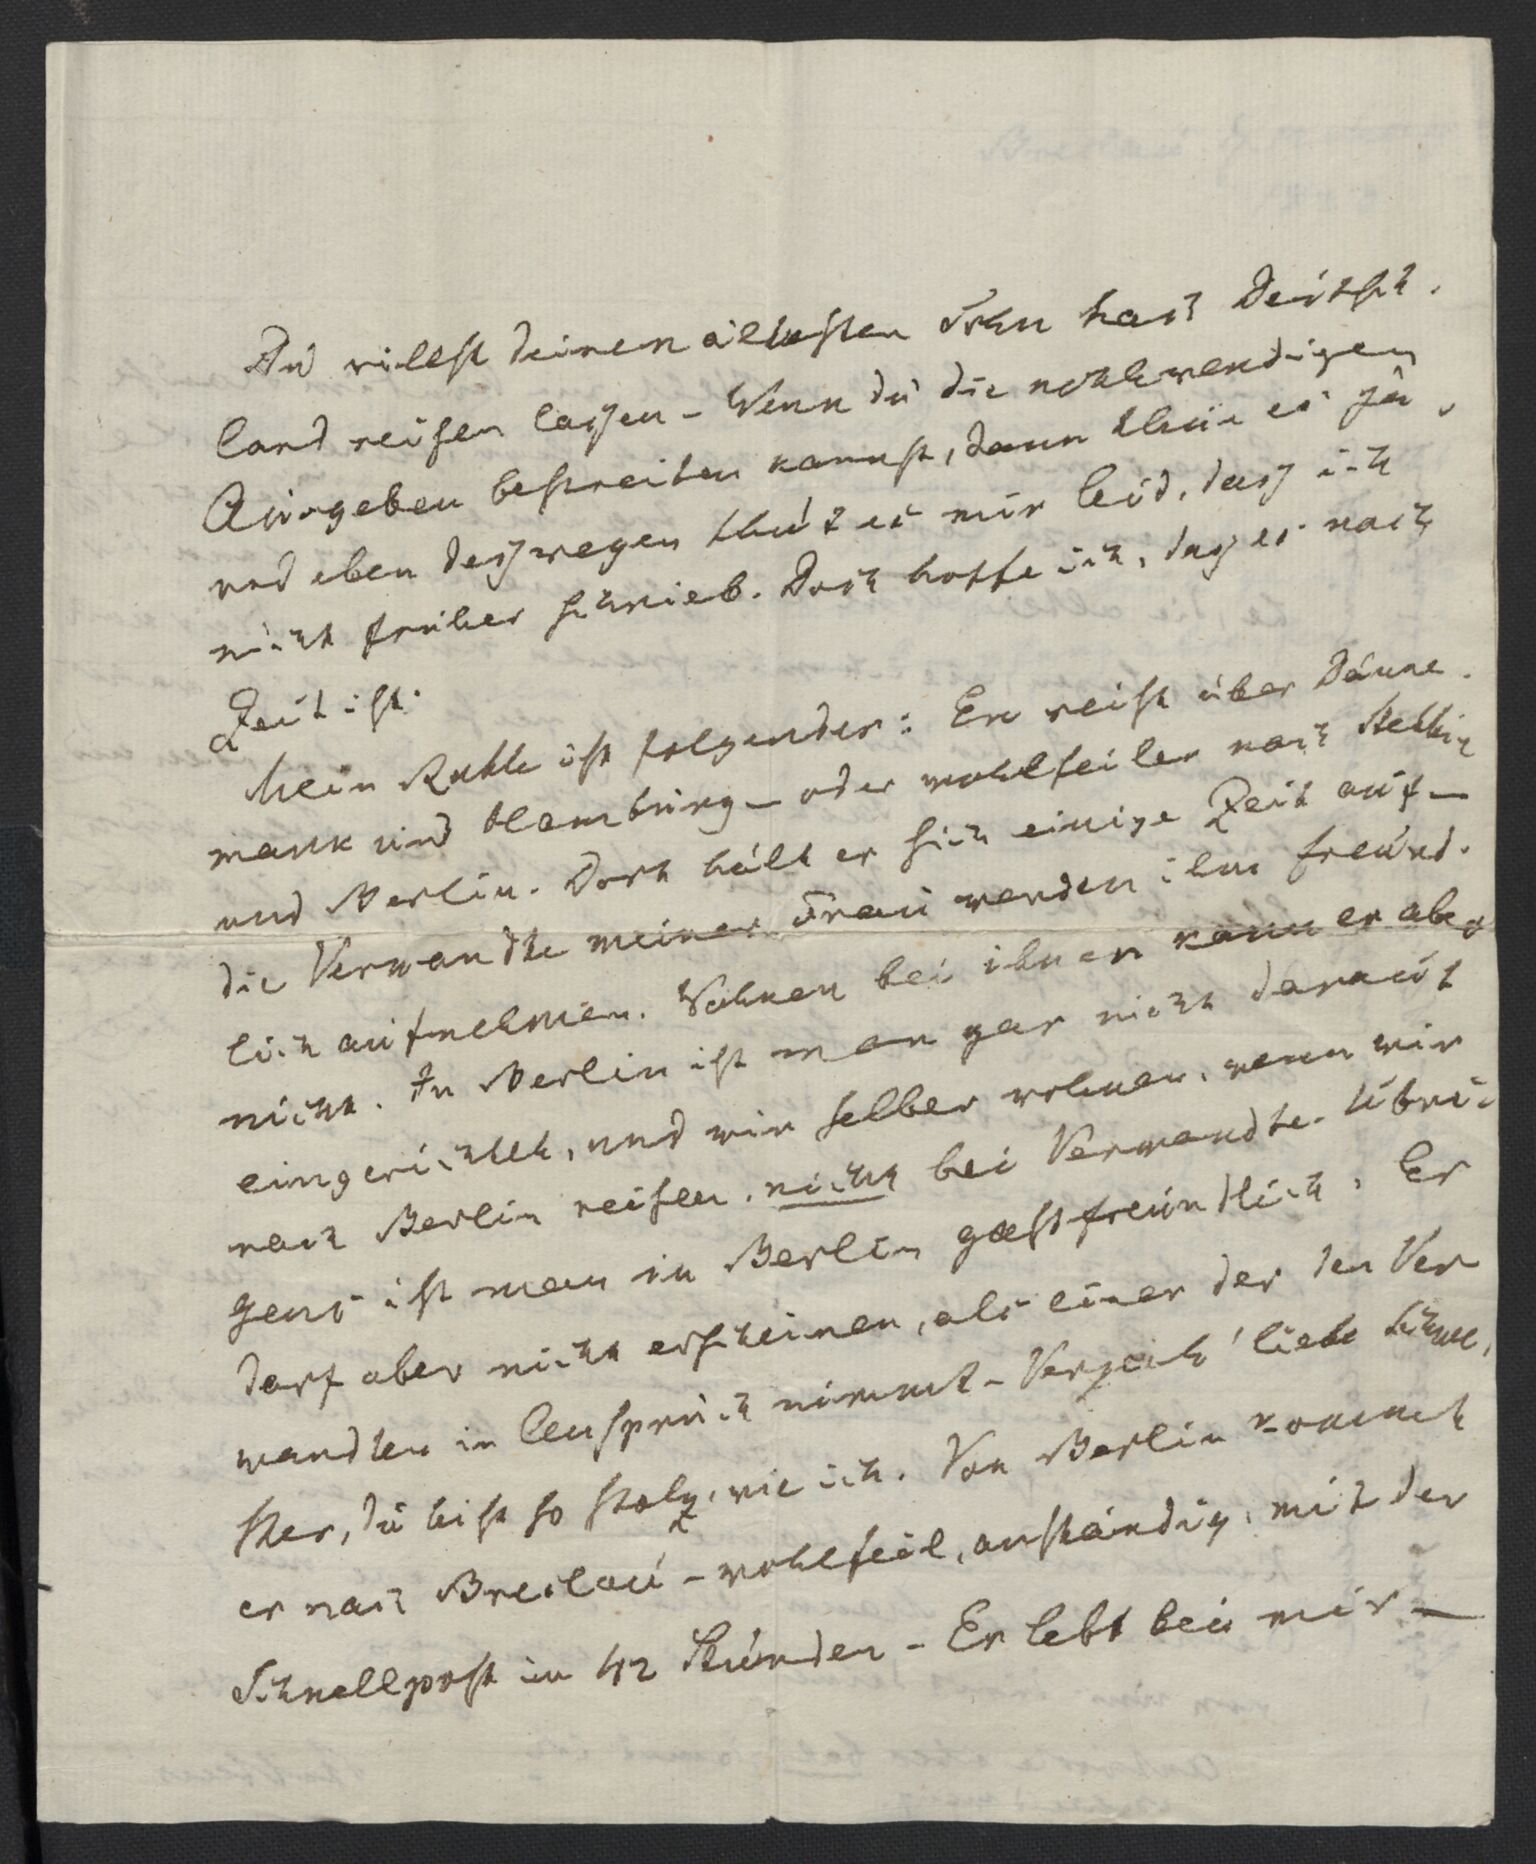 Du willst deinen ältesten Sohn nach Deutsch-
land reisen lassen – Wenn du die nothwendigen
Ausgeben bestreiten kannst, dann thue es ja,
und eben deszwegen thut es mir leid, dasz ich
nicht früher schrieb. Doch hoffe ich, dasz es noch
Zeit ist.
Mein Rath ist folgender: Er reist über Däne-
mark und Hamburg – oder wohlfeiler nach Stettin
und Berlin. Dort hält er sich einige Zeit auf –
die Verwandte meiner Frau werden ihn freund-
lich aufnehmen. Wohnen bei ihnen kann er aber
nicht. In Berlin ist man gar nicht darauf
eingerichtet, und wir selber wohnen, wenn wir
nach Berlin reisen, nicht bei Verwandte. Übri-
gens ist man in Berlin gastfreundlich. Er
darf aber nicht erscheinen, als einer der den Ver-
wandten in Anspruch nimmt – Verzeih' liebe Schwe-
ster, du bist so stolz, wie ich. Von Berlin kommt
er nach Breslau – wohlfeil, anständig, mit der
Schnellpost in 42 Stunden – Er lebt bei mir –